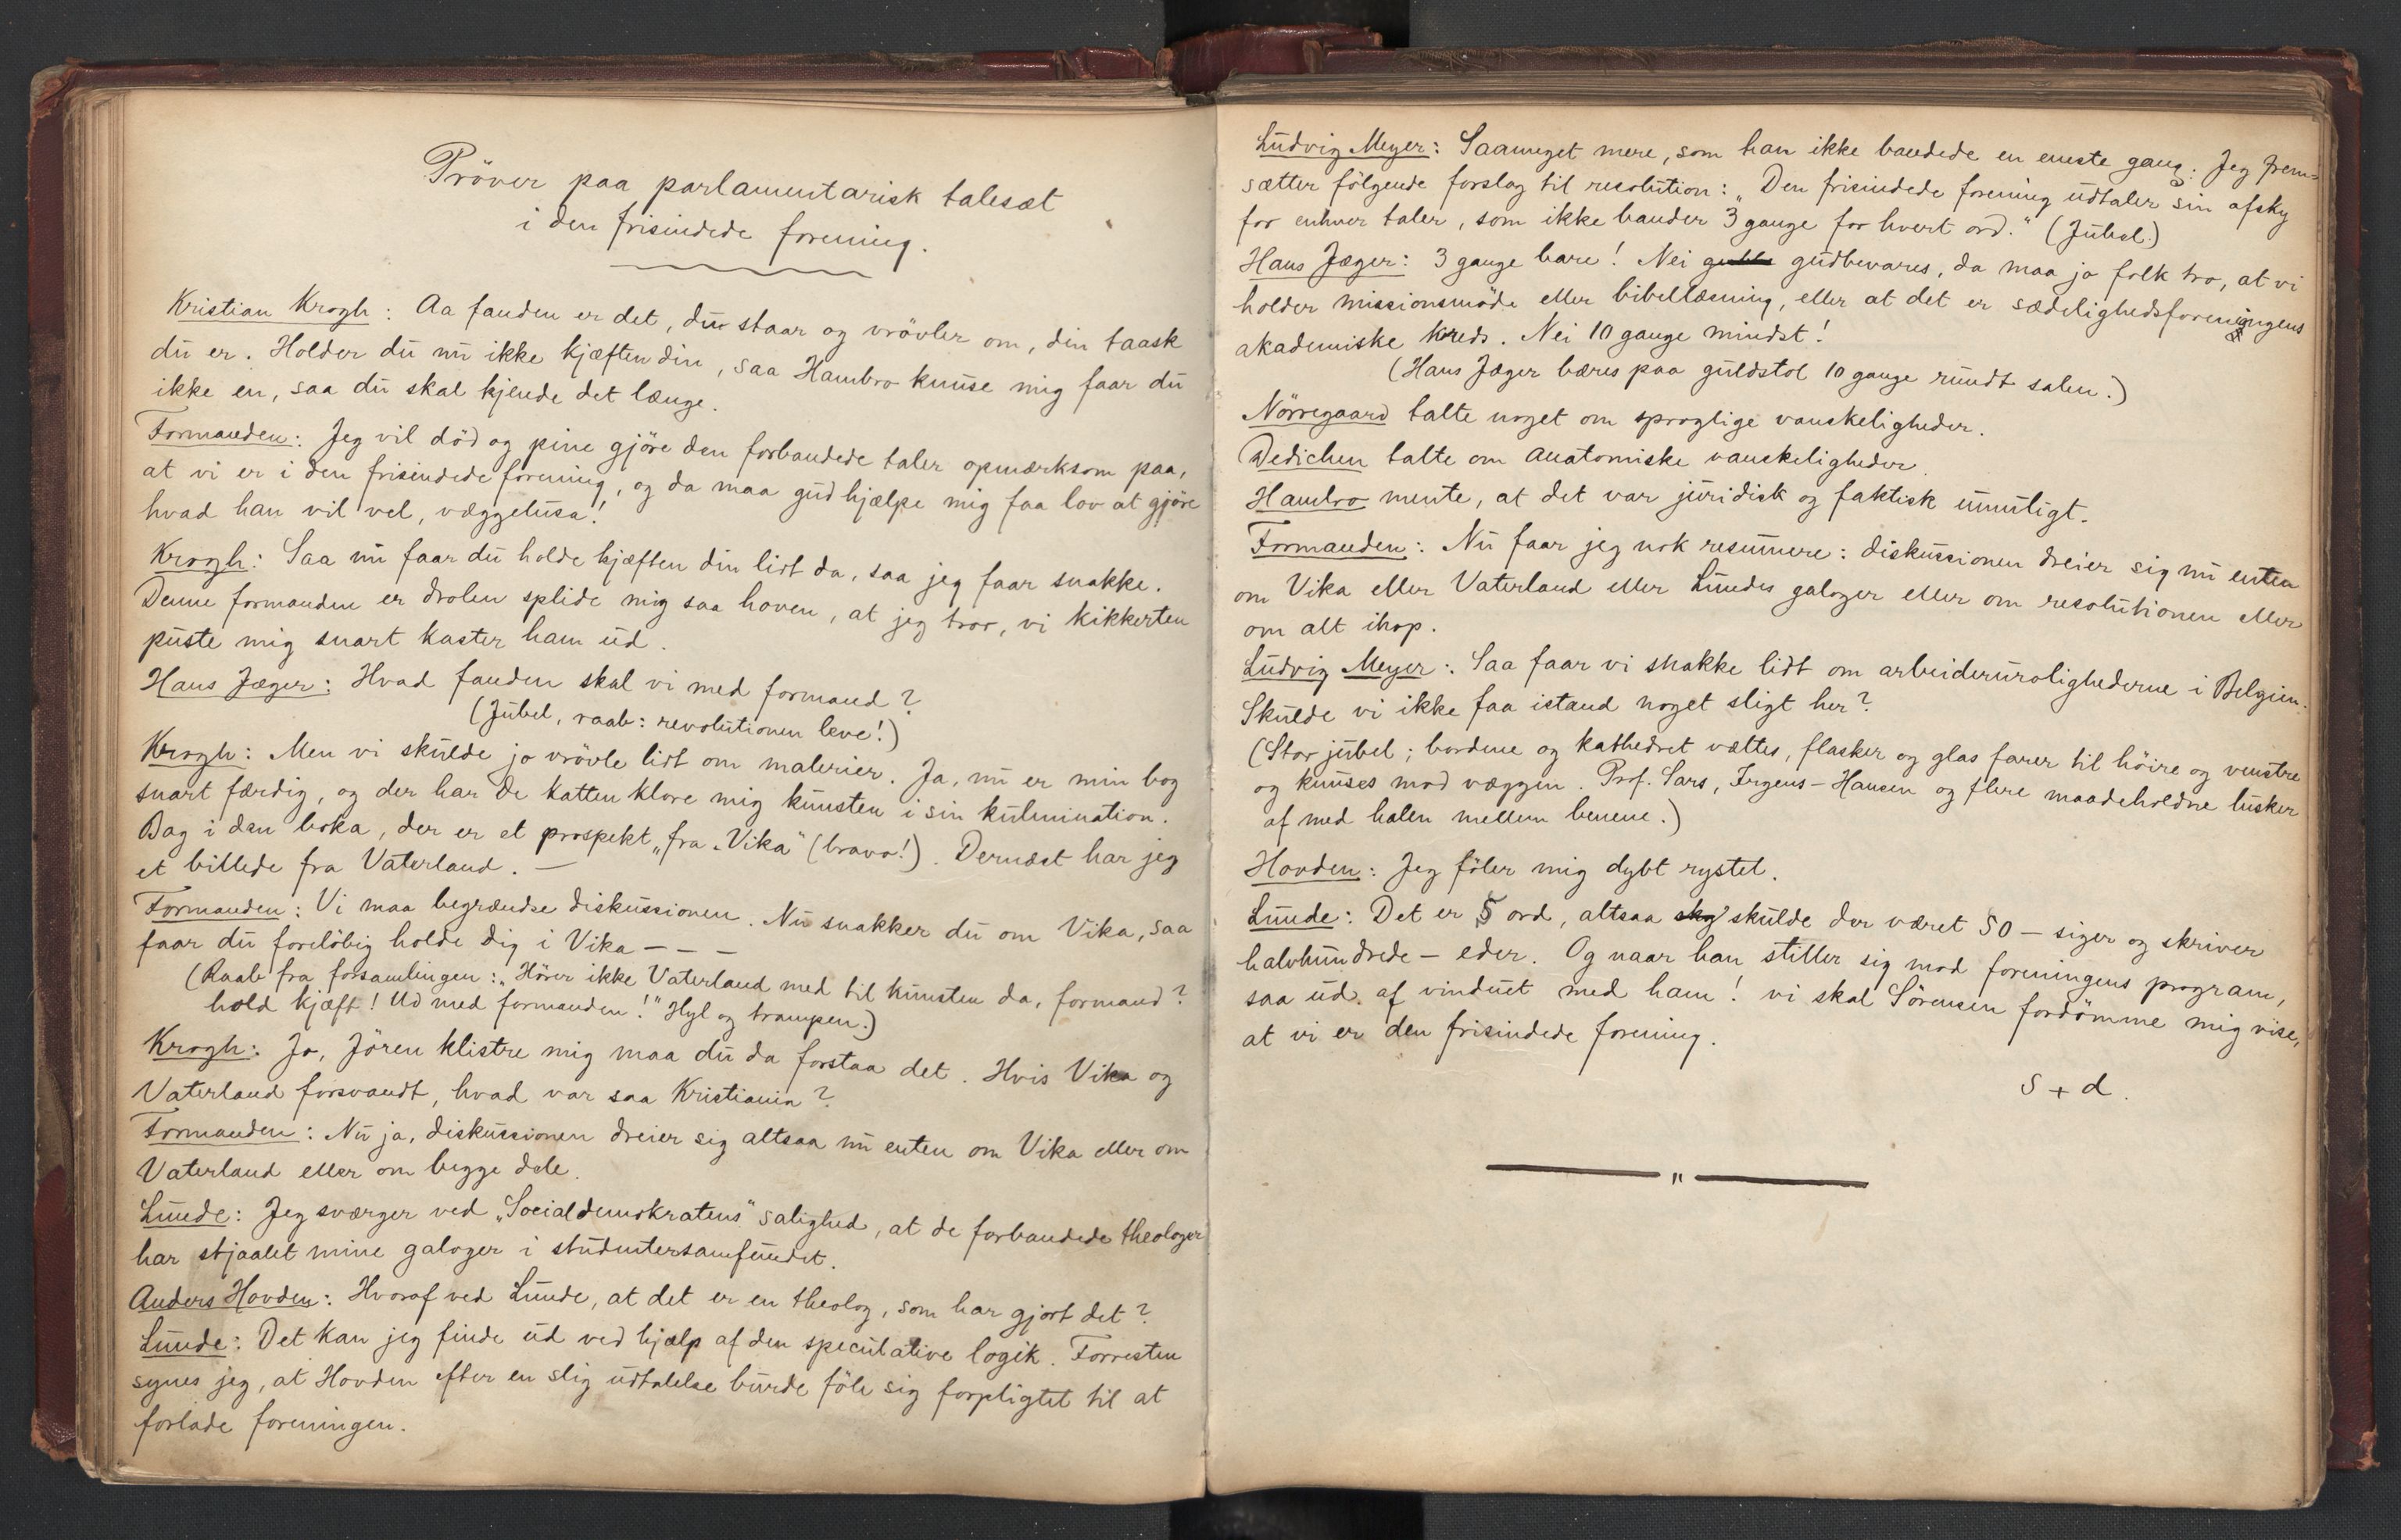 Pröver paa parlamentarisk talesæt
i den frisindede forening.
Kristian Krogh: Aa fanden er det, du staar og vrövler om, din taask
du er. Holder du nu ikke kjæften din, saa Hambro knuse mig faar du
ikke en, saa du skal kjende det længe.
Formanden: Jeg vil död og pine gjöre den forbandede taler opmærksom paa,
at vi er i den frisindede forening, og da maa gud hjælpe mig faa lov at gjöre
hvad han vil vel, væggelusa!
Krogh: Saa nu faar du holde kjæften din lidt da, saa jeg faar snakke.
Denne formanden er drolen splide mig saa hoven, at jeg tror, vi kikkerten
puste mig snart kaster ham ud.
Hans Jæger: Hvad fanden skal vi med formand?
(Jubel, raab: revolutionen leve!)
Krogh: Men vi skulde jo vrövle lidt om malerier. Ja, nu er min bog
snart færdig, og der har De katten klore mig kunsten i sin kulmination.
Bag i den boka, der er et prospekt „fra Vika" (bravo!). Dernæst har jeg
et billede fra Vaterland. —
Formanden: Vi maa begrændse diskussionen. Nu snakker du om Vika, saa
faar du forelöbig holde dig i Vika — — —
(Raab fra forsamlingen: „Hörer ikke Vaterland med til kunsten da, formand?
hold kjæft! Ud med formanden!" Hyl og trampen.)
Krogh: Jo, Jören klistre mig maa du da forstaa det. Hvis Vika og
Vaterland forsvandt, hvad var saa Kristiania?
Formanden: Nu ja, diskussionen dreier sig altsaa nu enten om Vika eller om
Vaterland eller om begge dele.
Lunde: Jeg sværger ved „Socialdemokratens" salighed, at de forbandede theologer
har stjaalet mine galoger i studentersamfundet.
Anders Hovden: Hvoraf ved Lunde, at det er en theolog, som har gjort det?
Lunde: Det kan jeg finde ud ved hjælp af den speculative logik. Forresten
synes jeg, at Hovden efter en slig udtalelse burde föle sig forpligtet til at
forlade foreningen.
Ludvig Meyer: Saameget mere, som han ikke bandede en eneste gang. Jeg frem=
sætter fölgende forslag til resolution: „Den frisindede forening udtaler sin afsky
for enhver taler, som ikke bander 3 gange for hvert ord." (Jubel.)
Hans Jæger: 3 gange bare! Nei gudbevares, da maa jo folk tro, at vi
holder missionsmöde eller bibellæsning, eller at det er sædelighedsforeningens
akademiske kreds. Nei 10 gange mindst!
(Hans Jæger bæres paa guldstol 10 gange rundt salen.)
Nörregaard talte noget om sproglige vanskeligheder.
Dedichen talte om anatomiske vanskeligheder.
Hambro mente, at det var juridisk og faktisk umuligt.
Formanden: Nu faar jeg nok resumere: diskussionen dreier sig nu enten
om Vika eller Vaterland eller Lundes galoger eller om resolutionen eller
om alt ihop.
Ludvig Meyer: Saa faar vi snakke lidt om arbeiderurolighederne i Belgien.
Skulde vi ikke faa istand noget sligt her?
(Stor jubel; bordene og kathedret væltes, flasker og glas farer til höire og venstre
og knuses mod væggen. Prof. Sars, Irgens-Hansen og flere maadeholdne lusker
af med halen mellem benene.)
Hovden: Jeg föler mig dybt rystet.
Lunde: Det er 5 ord, altsaa skulde der været 50 — siger og skriver
halvhundrede — eder. Og naar han stiller sig mod foreningens program,
saa ud af vinduet med ham! vi skal Sörensen fordömme mig vise,
at vi er den frisindede forening.
S + d.